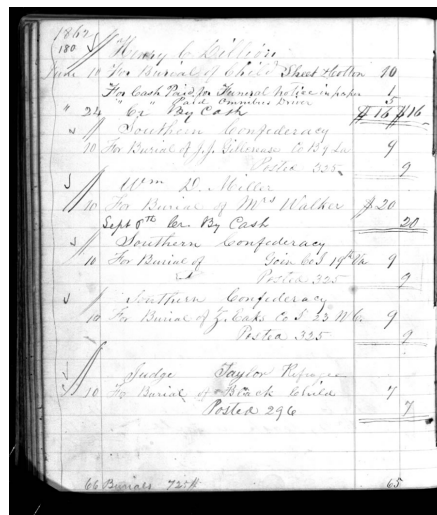 1862
180
Henry C.
June 10 For Burial of Child Sheet & Cotton 10
For Cash Paid for Funeral notice in paper 1
" " Paid Omnibus Driver 5
" 24 Cr By Cash $16 $16
Southern Confederacy
10 For Burial of J.J. Co By La 9
Posted 325 9
Wm D. Miller
10 For Burial of Mrs Walker $20
Sept 8th Cr. By Cash 20
Southern Confederacy
10 For Burial of Co I 19th Va 9
Posted 325 9
Southern Confederacy
10 For Burial of Z. Oaks Co I 23 N.C. 9
Posted 325 9
Judge Taylor Refugee
10 For Burial of Black Child 7
Posted 296 7
66 Burials 725 65